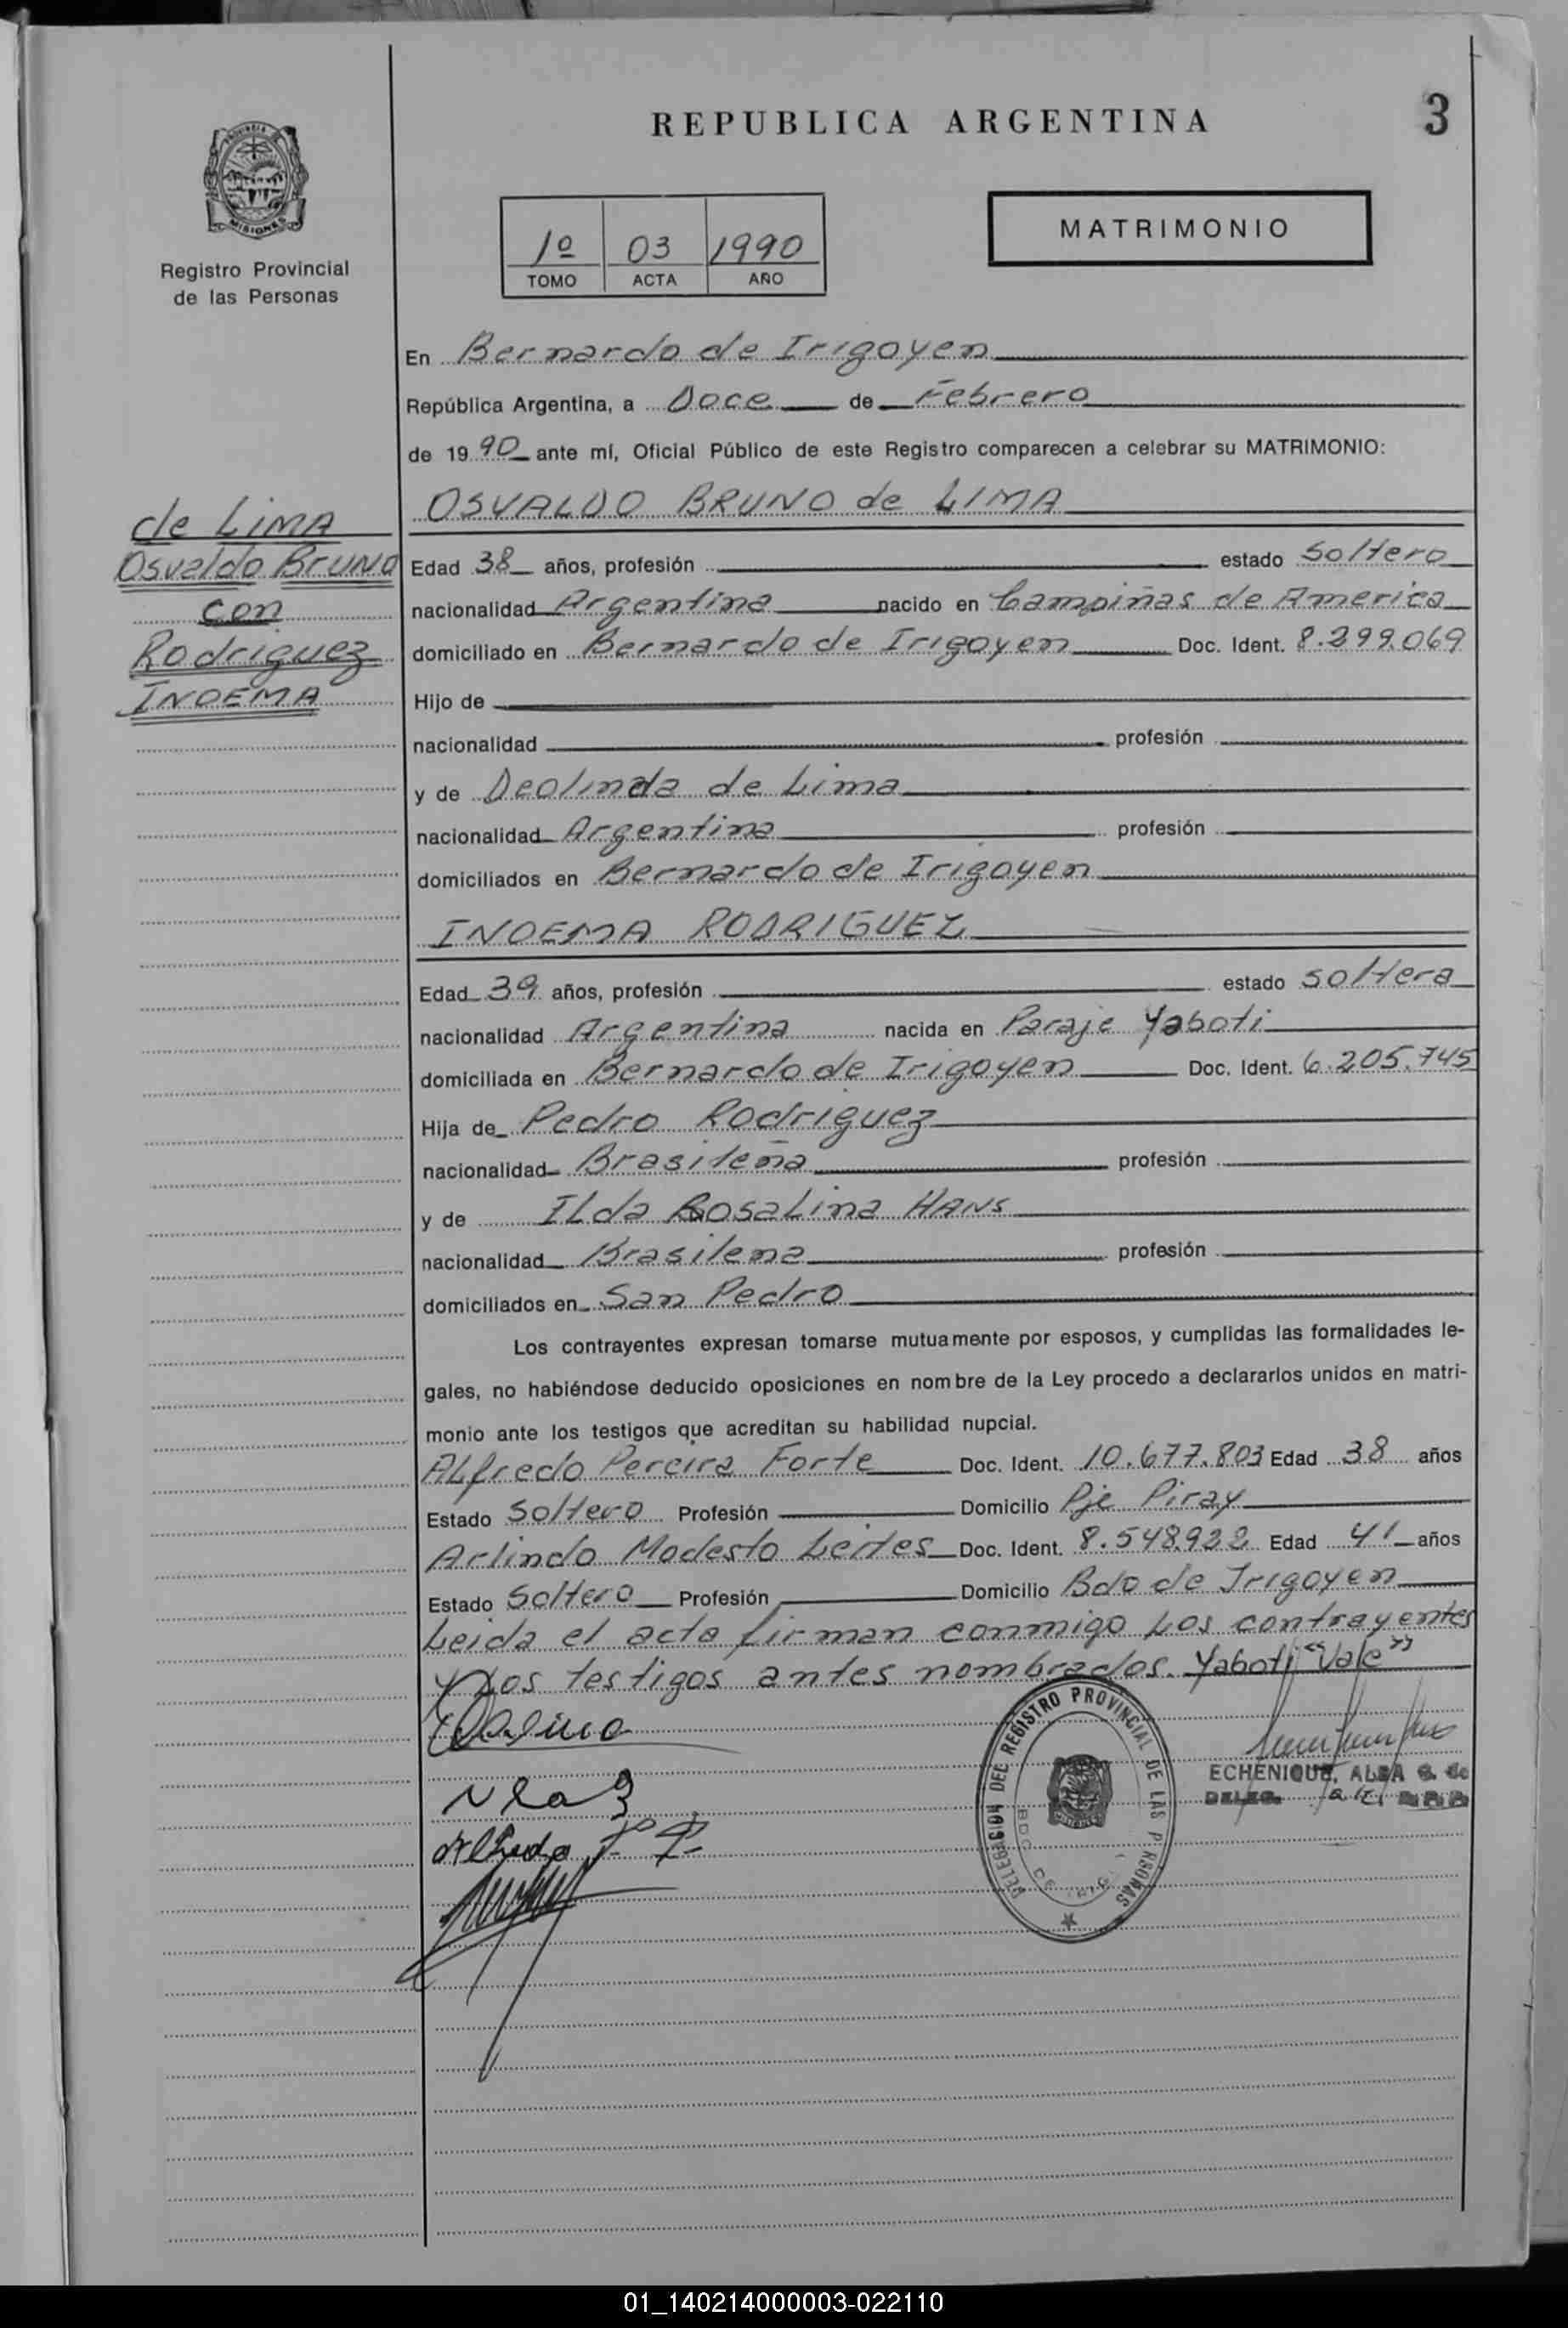 REPUBLICA ARGENTINA
3
PROVINCIA DE
MISIONES
Registro Provincial
de las Personas
1º 03 1990
TOMO ACTA AÑO
MATRIMONIO
En Bernardo de Irigoyen
República Argentina, a Doce de Febrero
de 1990 ante mí, Oficial Público de este Registro comparecen a celebrar su MATRIMONIO:
OSVALDO BRUNO de LIMA
de LIMA
Osvaldo BRUNO
con
Rodriguez
INOEMA
Edad 38 años, profesión estado Soltero
nacionalidad Argentina nacido en Campiñas de America
domiciliado en Bernardo de Irigoyen Doc. Ident. 8.299.069
Hijo de
nacionalidad profesión
y de Deolinda de Lima
nacionalidad Argentina profesión
domiciliados en Bernardo de Irigoyen
INOEMA RODRIGUEZ
Edad 39 años, profesión estado soltera
nacionalidad Argentina nacida en Paraje Yaboti
domiciliada en Bernardo de Irigoyen Doc. Ident. 6.205.745
Hija de Pedro Rodriguez
nacionalidad Brasileña profesión
y de ILda RosaLina HANS
nacionalidad Brasilena profesión
domiciliados en San Pedro
Los contrayentes expresan tomarse mutuamente por esposos, y cumplidas las formalidades le-
gales, no habiéndose deducido oposiciones en nombre de la Ley procedo a declararlos unidos en matri-
monio ante los testigos que acreditan su habilidad nupcial.
ALfredo Pereira Forte Doc. Ident. 10.677.803 Edad 38 años
Estado Soltero Profesión Domicilio Pje Piray
Arlindo Modesto Leites Doc. Ident. 8.548.922 Edad 41 años
Estado Soltero Profesión Domicilio Bdo de Irigoyen
Leida el acta firman conmigo Los contrayentes
y Los testigos antes nombrados. Yaboti "Vale"
DELEGACION DEL REGISTRO PROVINCIAL DE LAS PERSONAS
ECHENIQUE, ALBA G. de
DELEG.
Alfredo
01_140214000003-022110